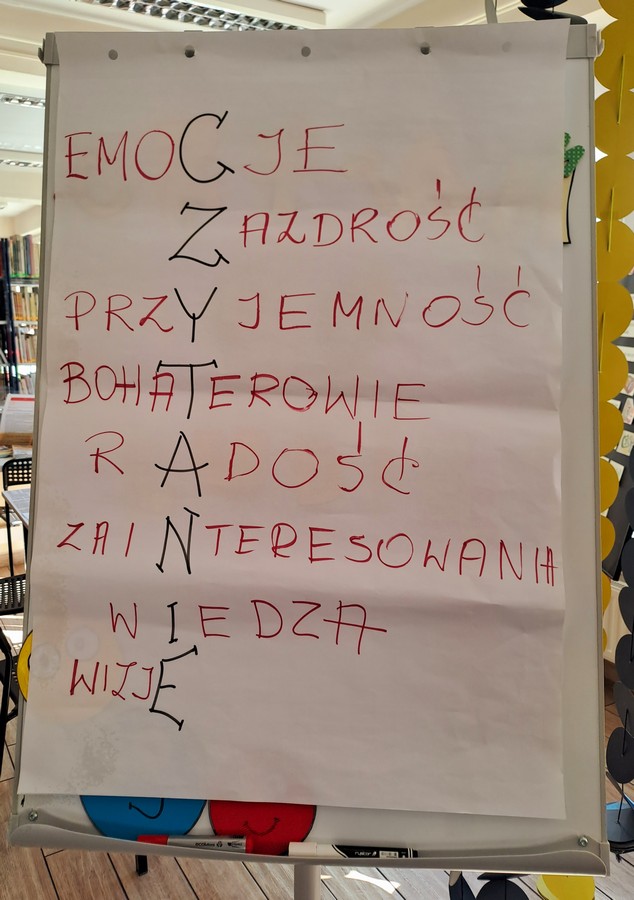 EMOCJE
ZAZDROŚĆ
PRZYJEMNOŚĆ
BOHATEROWIE
RADOŚĆ
ZAINTERESOWANIA
WIEDZA
WIZJE